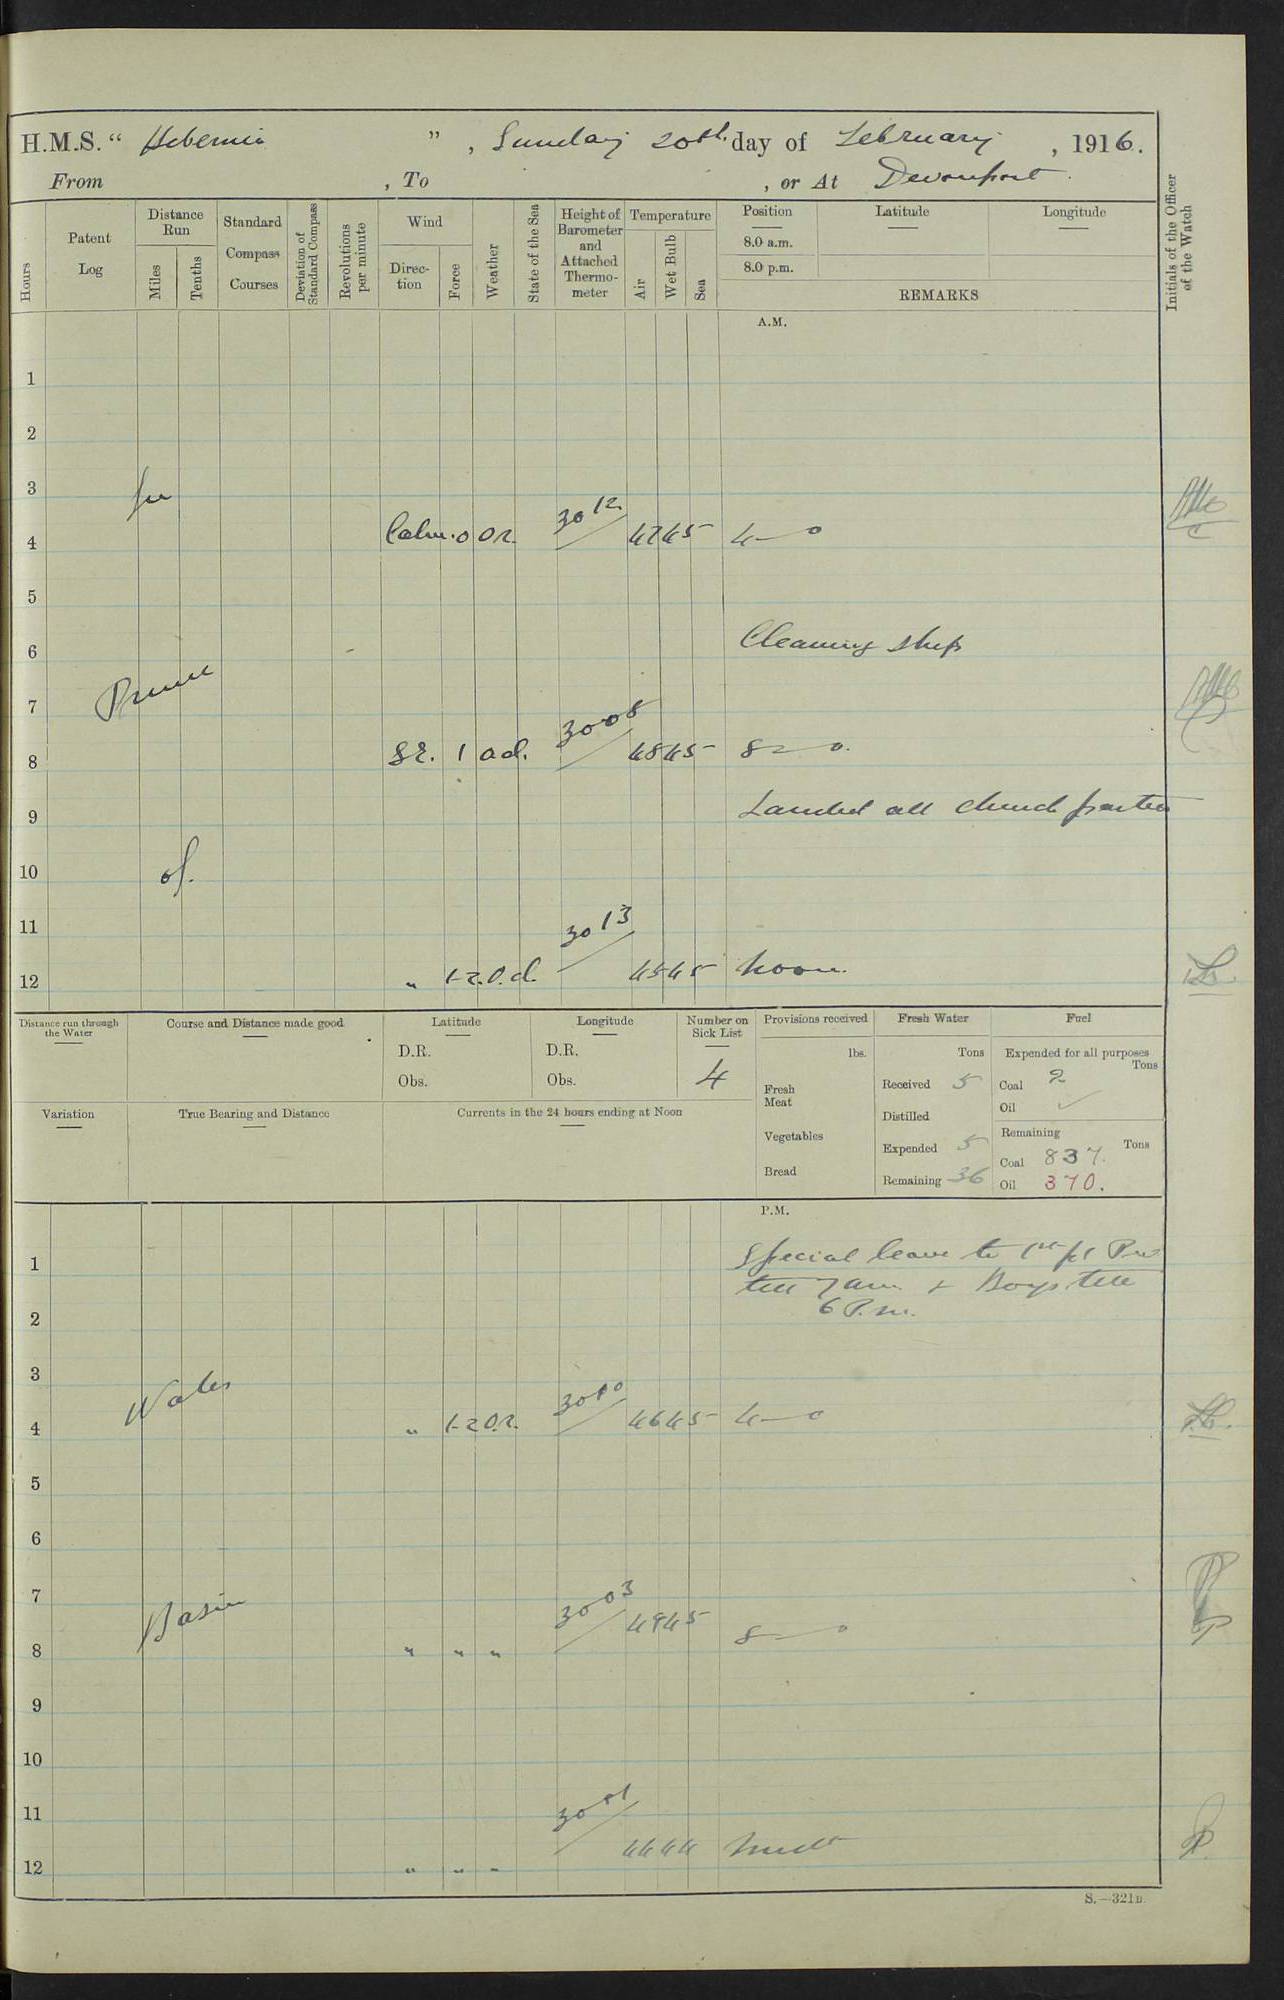 H.M.S. “ Hibernia ”, Sunday 20th day of February, 1916.
From , To , or At Devonport.
Hours
Patent Log
Distance Run
Miles
Tenths
Standard Compass Courses
Deviation of Standard Compass
Revolutions per minute
Wind
Direction
Force
Weather
State of the Sea
Height of Barometer and Attached Thermometer
Temperature
Air
Wet Bulb
Sea
Position
Latitude
Longitude
8.0 a.m.
8.0 p.m.
REMARKS
Initials of the Officer of the Watch
A.M.
1
2
3
In
4 Calm. 0 or. 30 12 47 45 4—0
5
6 Cleaning ship
7 Prince
8 SE. 1 od. 30 08 48 45 8—0.
9 Landed all church parties
10 of.
11
12 " 1-2 o.d. 30 13 45 45 Noon.
Distance run through the Water
Course and Distance made good
Latitude
D.R.
Obs.
Longitude
D.R.
Obs.
Number on Sick List
4
Provisions received
lbs.
Fresh Meat
Vegetables
Bread
Fresh Water
Tons
Received 5
Distilled
Expended 5
Remaining 36
Fuel
Expended for all purposes
Tons
Coal 2
Oil ✓
Remaining
Tons
Coal 837.
Oil 370.
Variation
True Bearing and Distance
Currents in the 24 hours ending at Noon
P.M.
1 Special leave to 1st pt
till 7 am & Boys till
2 6 P.m.
3
Wales
4 " 1-2 or. 30 10 46 45 4—0
5
6
7
Basin
8 " " " 30 03 49 45 8—0
9
10
11
12 " " " 30 01 44 44 Midt
S.—321B.